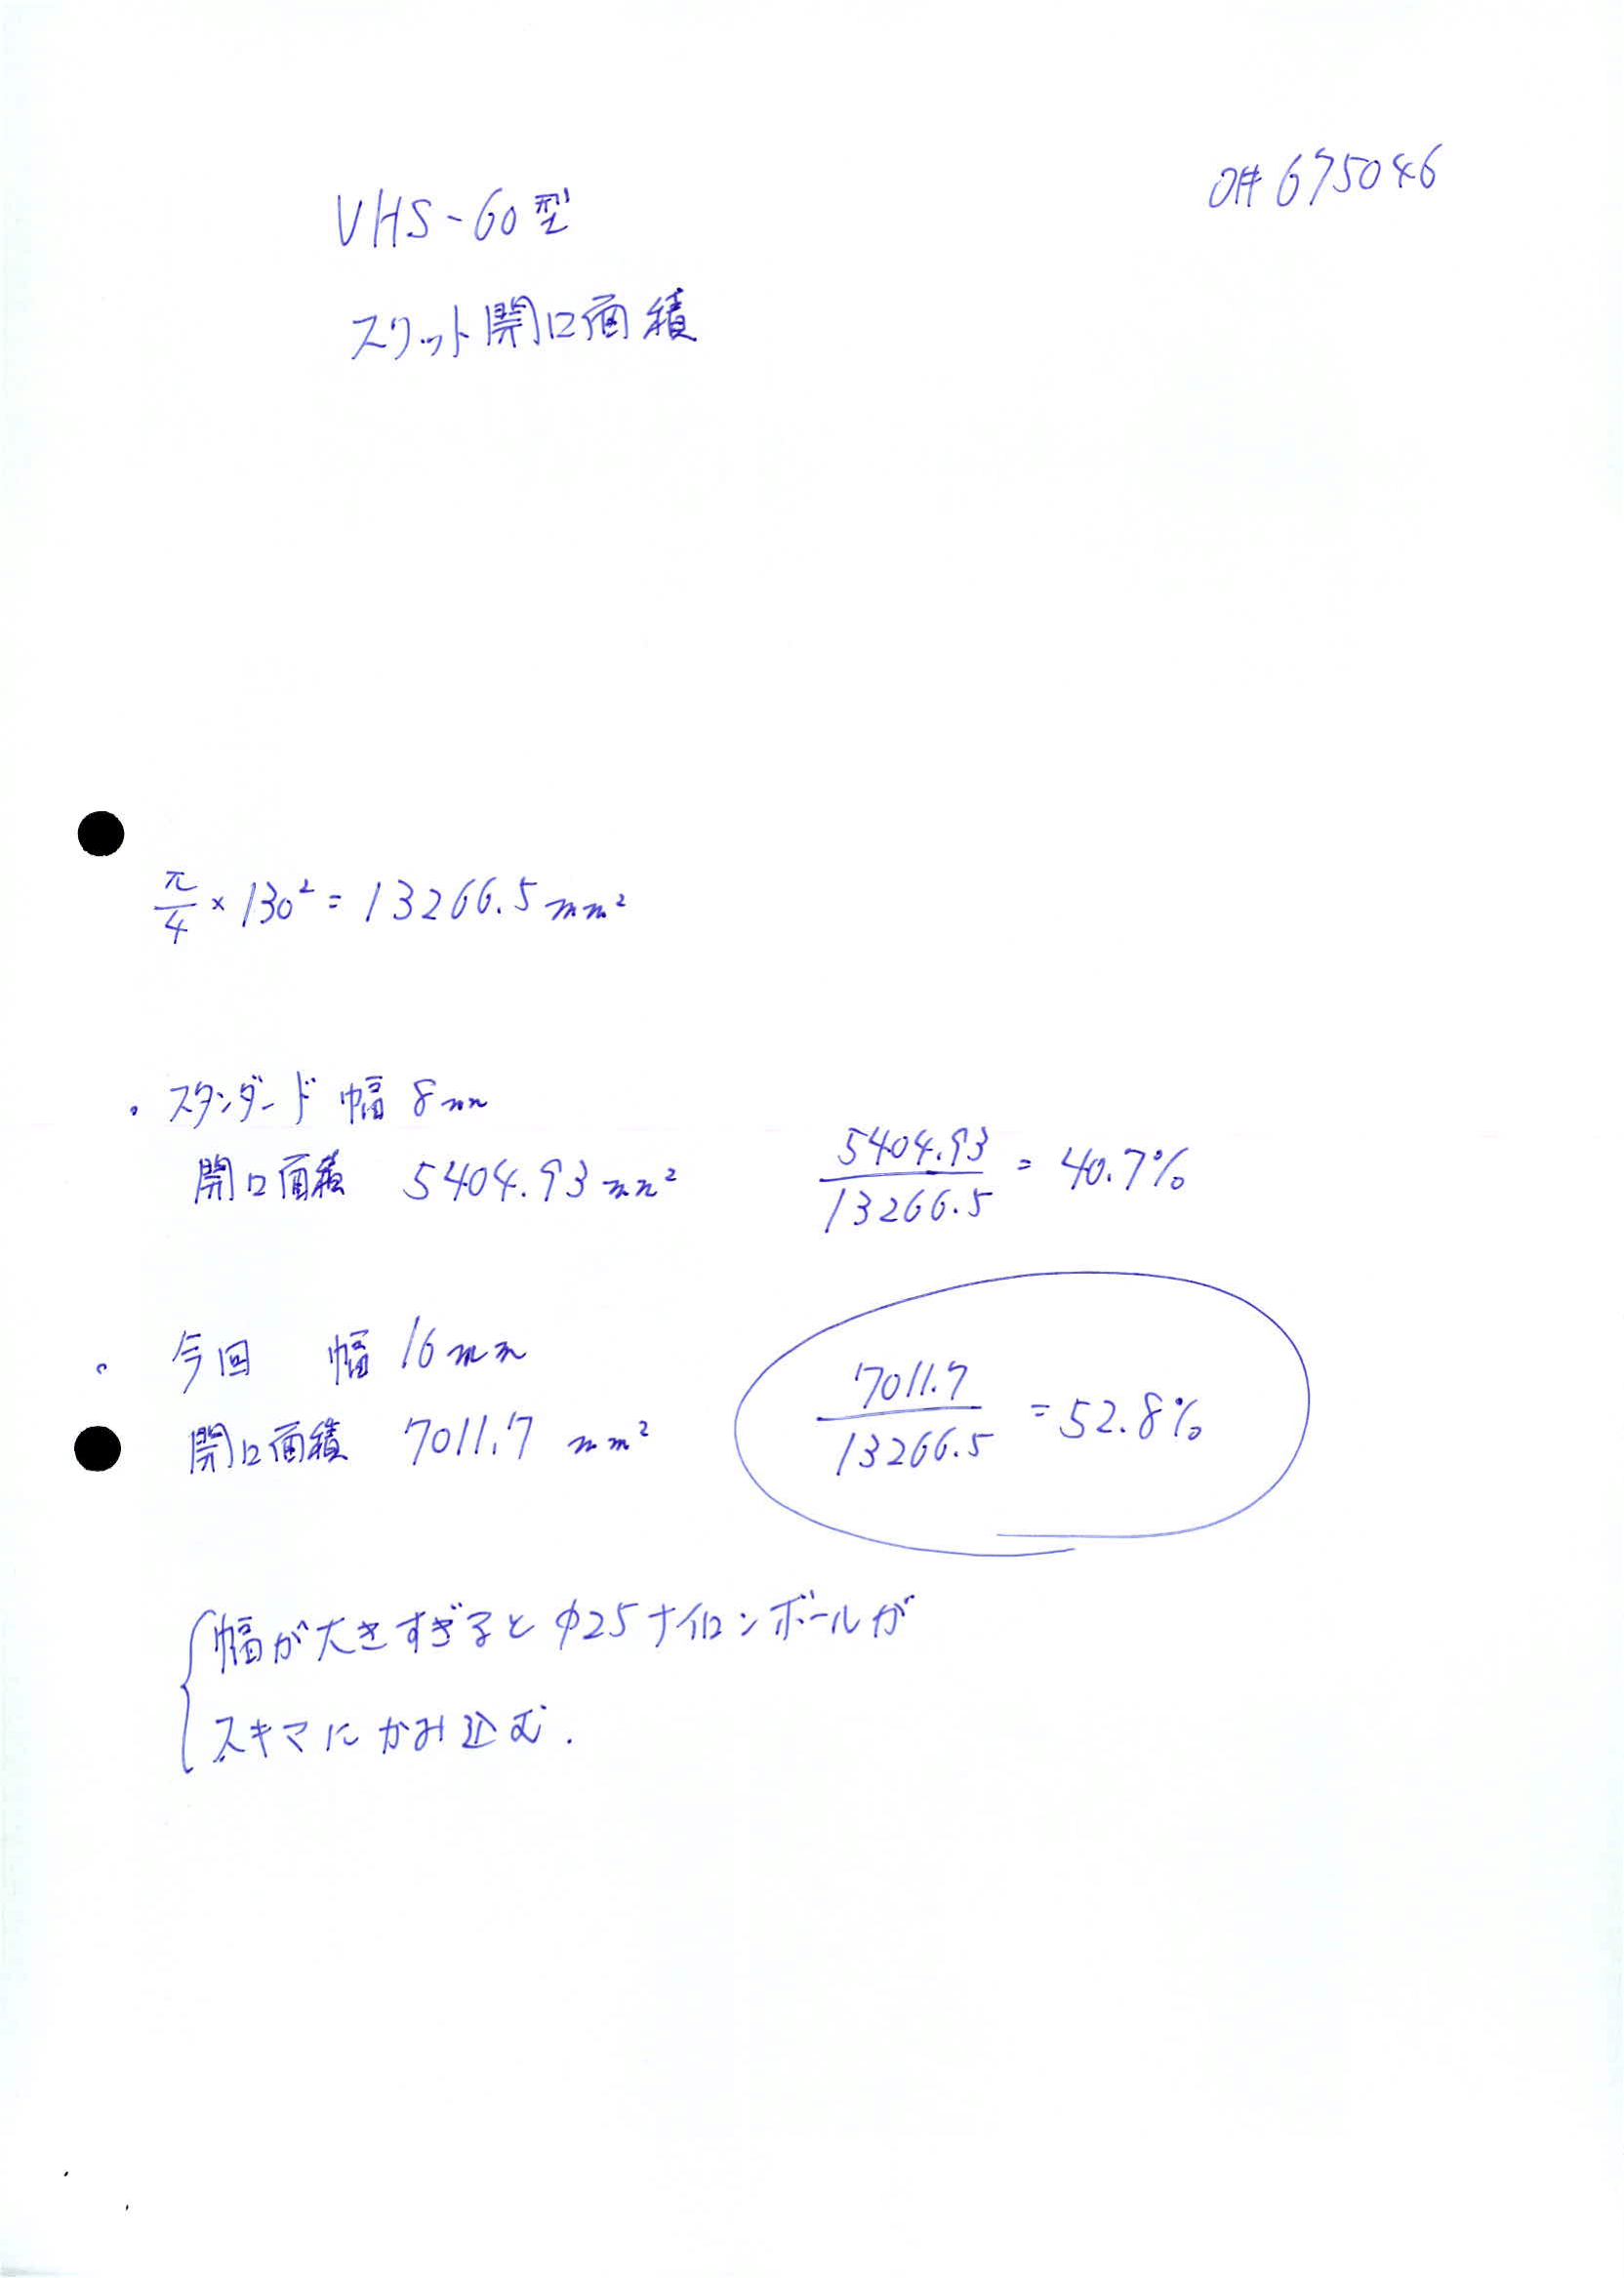 O# 675046
VHS-60型
スリット開口面積
π/4 × 130² = 13266.5 mm²
。スタンダード 幅 8mm
開口面積 5404.93 mm² 5404.93/13266.5 = 40.7%
。今回 幅 16mm
開口面積 7011.7 mm² 7011.7/13266.5 = 52.8%
幅が大きすぎると φ25ナイロンボールが
スキマにかみ込む.